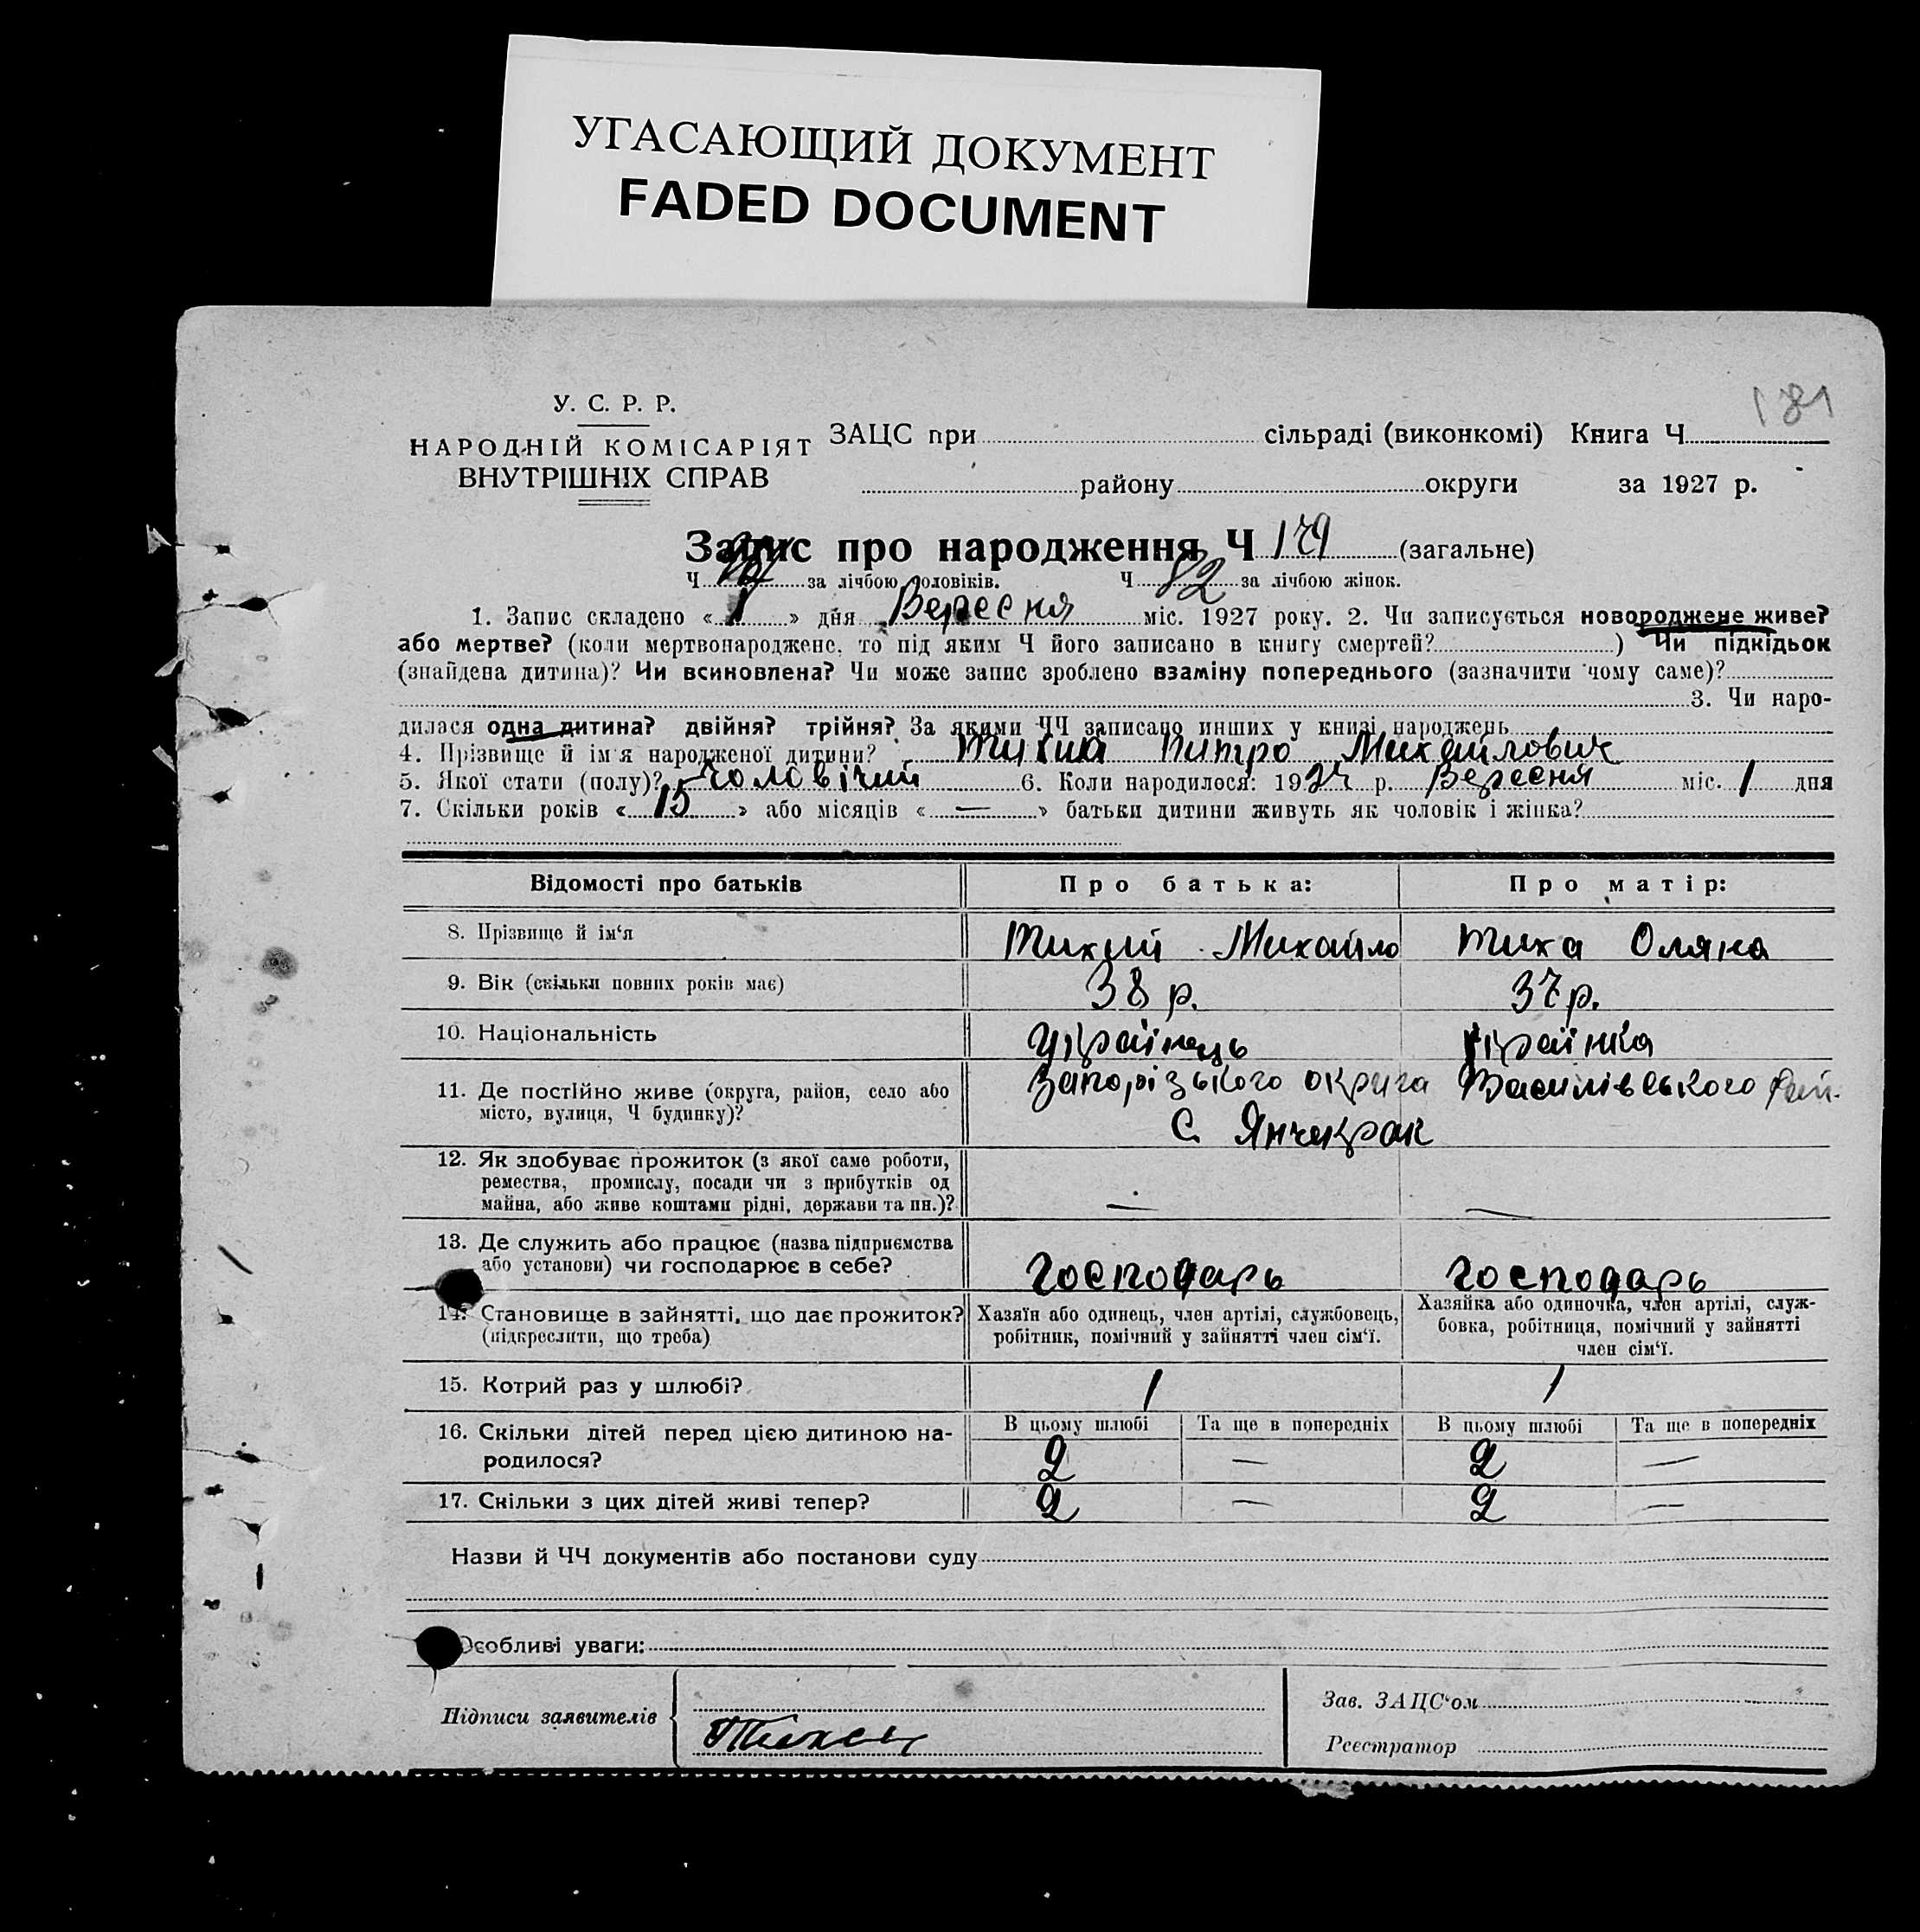 УГАСАЮЩИЙ ДОКУМЕНТ
FADED DOCUMENT
181
У. С. Р. Р.
НАРОДНІЙ КОМІСАРІЯТ
ВНУТРІШНІХ СПРАВ
ЗАЦС при сільраді (виконкомі) Книга Ч.
району округи за 1927 р.
Запис про народження Ч 179 (загальне)
Ч за лічбою чоловіків. Ч 82 за лічбою жінок.
1. Запис складено « 1 » дня Вересня міс. 1927 року. 2. Чи записується новороджене живе?
або мертве? (коли мертвонароджене, то під яким Ч його записано в книгу смертей? ) Чи підкідьок
(знайдена дитина)? Чи всиновлена? Чи може запис зроблено взаміну попереднього (зазначити чому саме)?
3. Чи наро-
дилася одна дитина? двійня? трійня? За якими ЧЧ записано инших у книзі народжень
4. Прізвище й ім'я народженої дитини? Тихий Питро Михайлович
5. Якої стати (полу)? Чоловічий 6. Коли народилося: 1927 р. Вересня міс. 1 дня
7. Скільки років « 15 » або місяців « — » батьки дитини живуть як чоловік і жінка?
Відомості про батьків Про батька: Про матір:
8. Прізвище й ім'я Тихий Михайло Тиха Оляна
9. Вік (скільки повних років має) 38 р. 37 р.
10. Національність Українець Українка
11. Де постійно живе (округа, район, село або Запорізького округа Василівського рай.
місто, вулиця, Ч будинку)? С. Янчекрак
12. Як здобуває прожиток (з якої саме роботи,
ремества, промислу, посади чи з прибутків од
майна, або живе коштами рідні, держави та ин.)? — —
13. Де служить або працює (назва підприємства
або установи) чи господарює в себе? Господарь Господарь
14. Становище в зайнятті, що дає прожиток? Хазяїн або одинець, член артілі, службовець, Хазяйка або одиночка, член артілі, служ-
(підкреслити, що треба) робітник, помічний у зайнятті член сім'ї. бовка, робітниця, помічний у зайнятті
член сім'ї.
15. Котрий раз у шлюбі? 1 1
16. Скільки дітей перед цією дитиною на- В цьому шлюбі Та ще в попередніх В цьому шлюбі Та ще в попередніх
родилося? 2 — 2 —
17. Скільки з цих дітей живі тепер? 2 — 2 —
Назви й ЧЧ документів або постанови суду
Особливі уваги:
Підписи заявителів
Зав. ЗАЦС'ом
Реєстратор